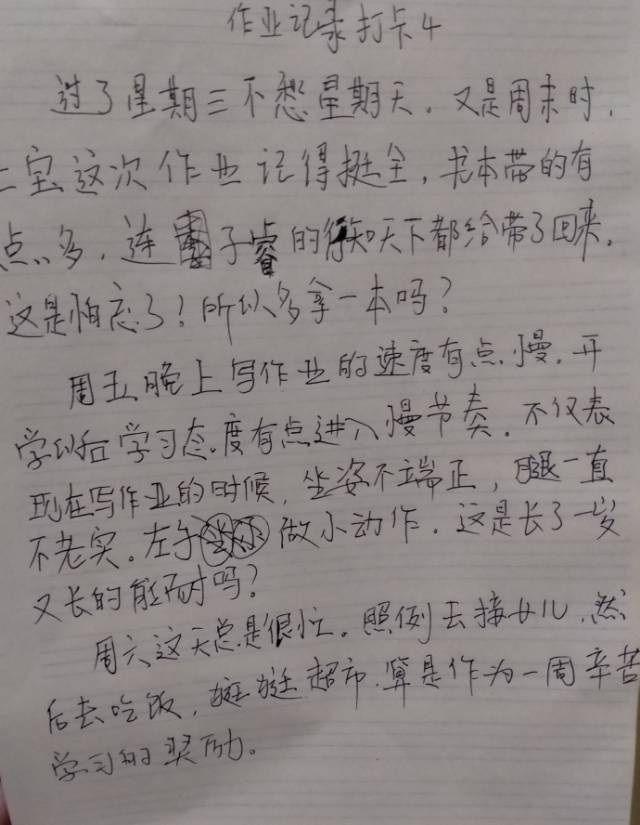 作业记录打卡4
过了星期三不愁星期天。又是周末时,
二宝这次作业记得挺全,书本带的有
点多,连子睿的知天下都给带了回来。
这是怕忘了!所以多拿一本吗?
周五晚上写作业的速度有点慢。开
学以后学习态度有点进入慢节奏。不仅表
现在写作业的时候,坐姿不端正,腿一直
不老实。左手做小动作。这是长了一岁
又长的能耐吗?
周六这天总是很忙。照例去接女儿,然
后去吃饭,逛逛超市.算是作为一周辛苦
学习的奖励。